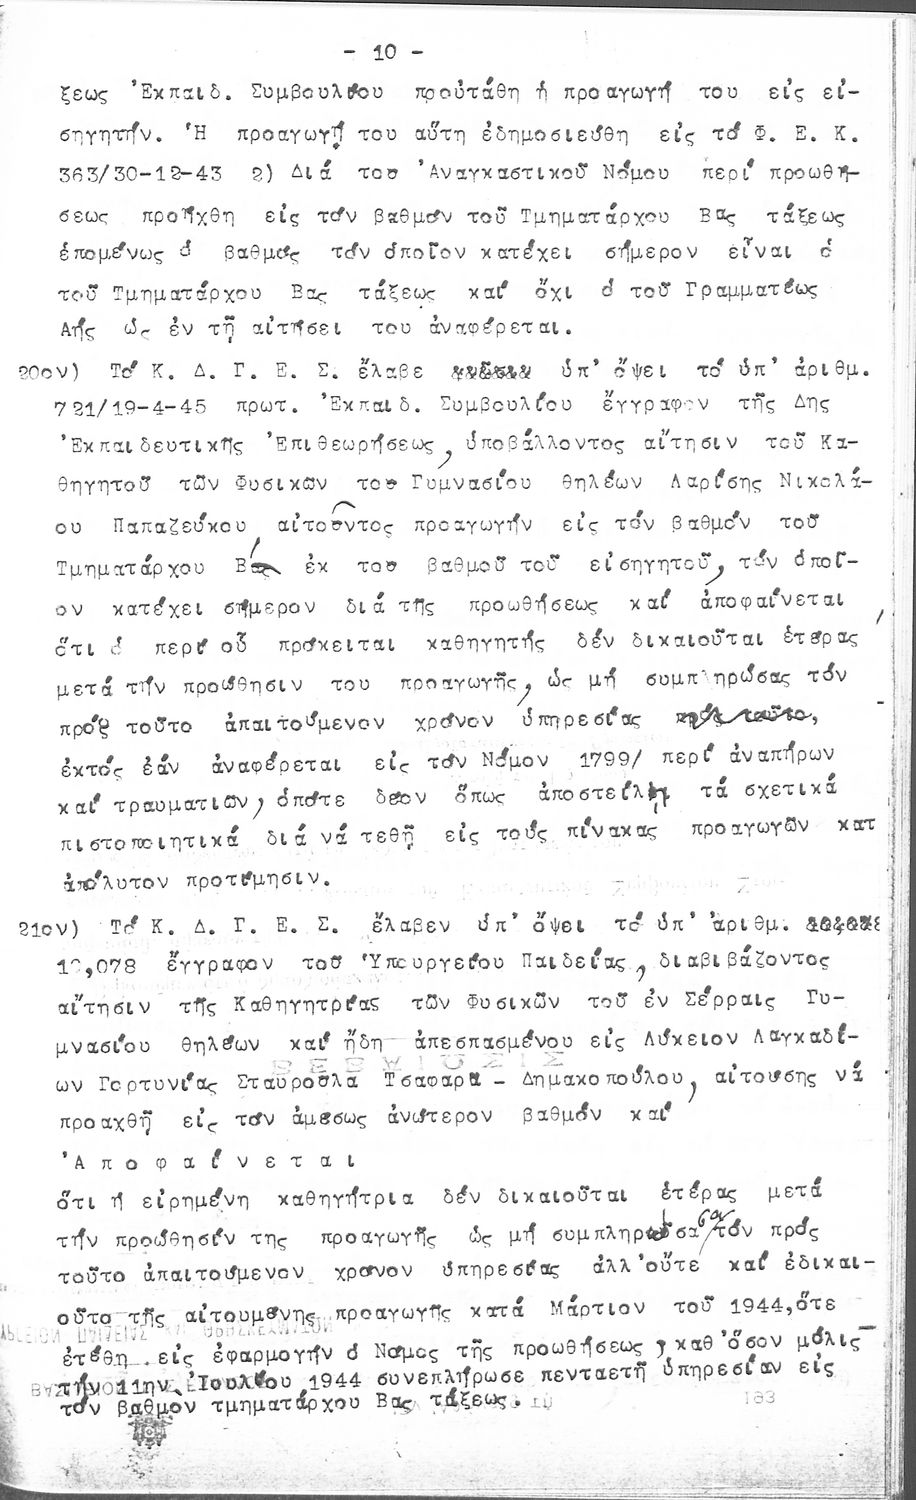 - 10 -
ξεως Ἐκπαιδ. Συμβουλίου προὐτάθη ἡ προαγωγή του εἰς εἰ-
σηγητήν. Ἡ προαγωγή του αὕτη ἐδημοσιεύθη εἰς τό Φ. Ε. Κ.
363/30-12-43 2) Διά του Ἀναγκαστικοῦ Νόμου περί προωθή-
σεως προήχθη εἰς τόν βαθμόν τοῦ Τμηματάρχου Βας τάξεως
ἑπομένως ὁ βαθμός τόν ὁποῖον κατέχει σήμερον εἶναι ὁ
τοῦ Τμηματάρχου Βας τάξεως καί ὄχι ὁ τοῦ Γραμματέως
Αής ὡς ἐν τῇ αἰτήσει του ἀναφέρεται.
20ον) Τό Κ. Δ. Γ. Ε. Σ. ἔλαβε ὑπ' ὄψει τό ὑπ' ἀριθμ.
721/19-4-45 πρωτ. Ἐκπαιδ. Συμβουλίου ἔγγραφον τῆς Δης
Ἐκπαιδευτικῆς Ἐπιθεωρήσεως, ὑποβάλλοντος αἴτησιν τοῦ Κα-
θηγητοῦ τῶν Φυσικῶν του Γυμνασίου θηλέων Λαρίσης Νικολά-
ου Παπαζεύκου αἰτοῦντος προαγωγήν εἰς τόν βαθμόν τοῦ
Τμηματάρχου Βας ἐκ του βαθμοῦ τοῦ εἰσηγητοῦ, τόν ὁποῖ-
ον κατέχει σήμερον διά τῆς προωθήσεως καί ἀποφαίνεται
ὅτι ὁ περί οὗ πρόκειται καθηγητής δέν δικαιοῦται ἑτέρας
μετά τήν προώθησιν του προαγωγῆς, ὡς μή συμπληρώσας τόν
πρός τοῦτο ἀπαιτούμενον χρόνον ὑπηρεσίας πρός τοῦτο,
ἐκτός ἐάν ἀναφέρεται εἰς τόν Νόμον 1799/ περί ἀναπήρων
καί τραυματιῶν, ὁπότε δέον ὅπως ἀποστείλῃ τά σχετικά
πιστοποιητικά διά νά τεθῇ εἰς τούς πίνακας προαγωγῶν κατ
ἀπόλυτον προτίμησιν.
21ον) Τό Κ. Δ. Γ. Ε. Σ. ἔλαβεν ὑπ' ὄψει τό ὑπ' ἀριθμ.
10,078 ἔγγραφον τοῦ Ὑπουργείου Παιδείας, διαβιβάζοντος
αἴτησιν τῆς Καθηγητρίας τῶν Φυσικῶν τοῦ ἐν Σέρραις Γυ-
μνασίου θηλέων καί ἤδη ἀπεσπασμένου εἰς Λύκειον Λαγκαδί-
ων Γορτυνίας Σταυροῦλα Τσαφαρα - Δημακοπούλου, αἰτούσης νά
προαχθῇ εἰς τόν ἀμέσως ἀνώτερον βαθμόν καί
Ἀ π ο φ α ί ν ε τ α ι
ὅτι ἡ εἰρημένη καθηγήτρια δέν δικαιοῦται ἑτέρας μετά
τήν προώθησίν της προαγωγῆς ὡς μή συμπληρώσασα τόν πρός
τοῦτο ἀπαιτούμενον χρόνον ὑπηρεσίας ἀλλ' οὔτε καί ἐδικαι-
οῦτο τῆς αἰτουμένης προαγωγῆς κατά Μάρτιον τοῦ 1944, ὅτε
ἐτέθη εἰς ἐφαρμογήν ὁ Νόμος τῆς προωθήσεως, καθ' ὅσον μόλις
τήν 11ην Ἰουλίου 1944 συνεπλήρωσε πενταετῆ ὑπηρεσίαν εἰς
τόν βαθμον τμηματάρχου Βας τάξεως.